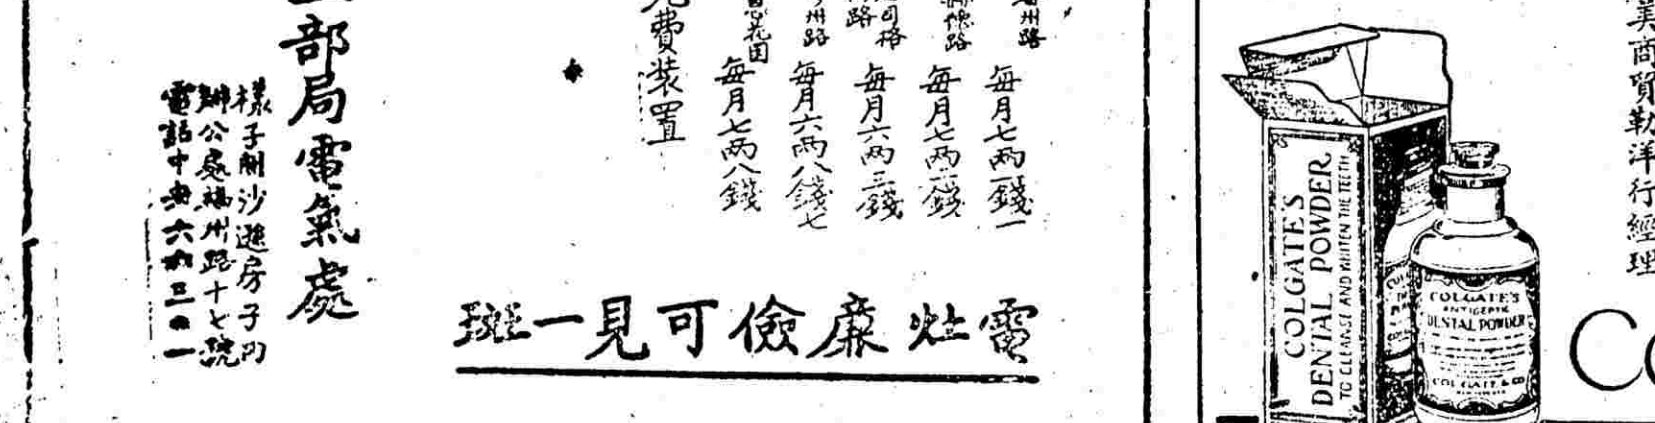 商貿勒洋行經理
COLGATE'S
DENTAL POWDER
TO CLEANSE AND WHITEN THE TEETH
COLGATE'S
ANTISEPTIC
DENTAL POWDER
COLGATE & CO
州路
每月七兩一錢一
德路
每月七兩二錢
司格
路
每月六兩三錢
州路
每月六兩八錢七
花园
每月七兩八錢
費裝置
電灶廉儉可見一斑
部局電氣處
樣子間沙遜房子內
辦公處福州路十七號
電話中央六